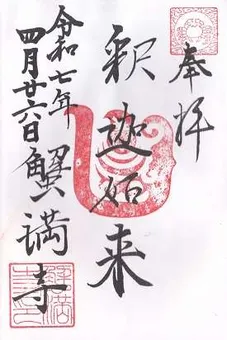 奉拝
釈迦如来
令和七年
四月廿六日
蟹満寺